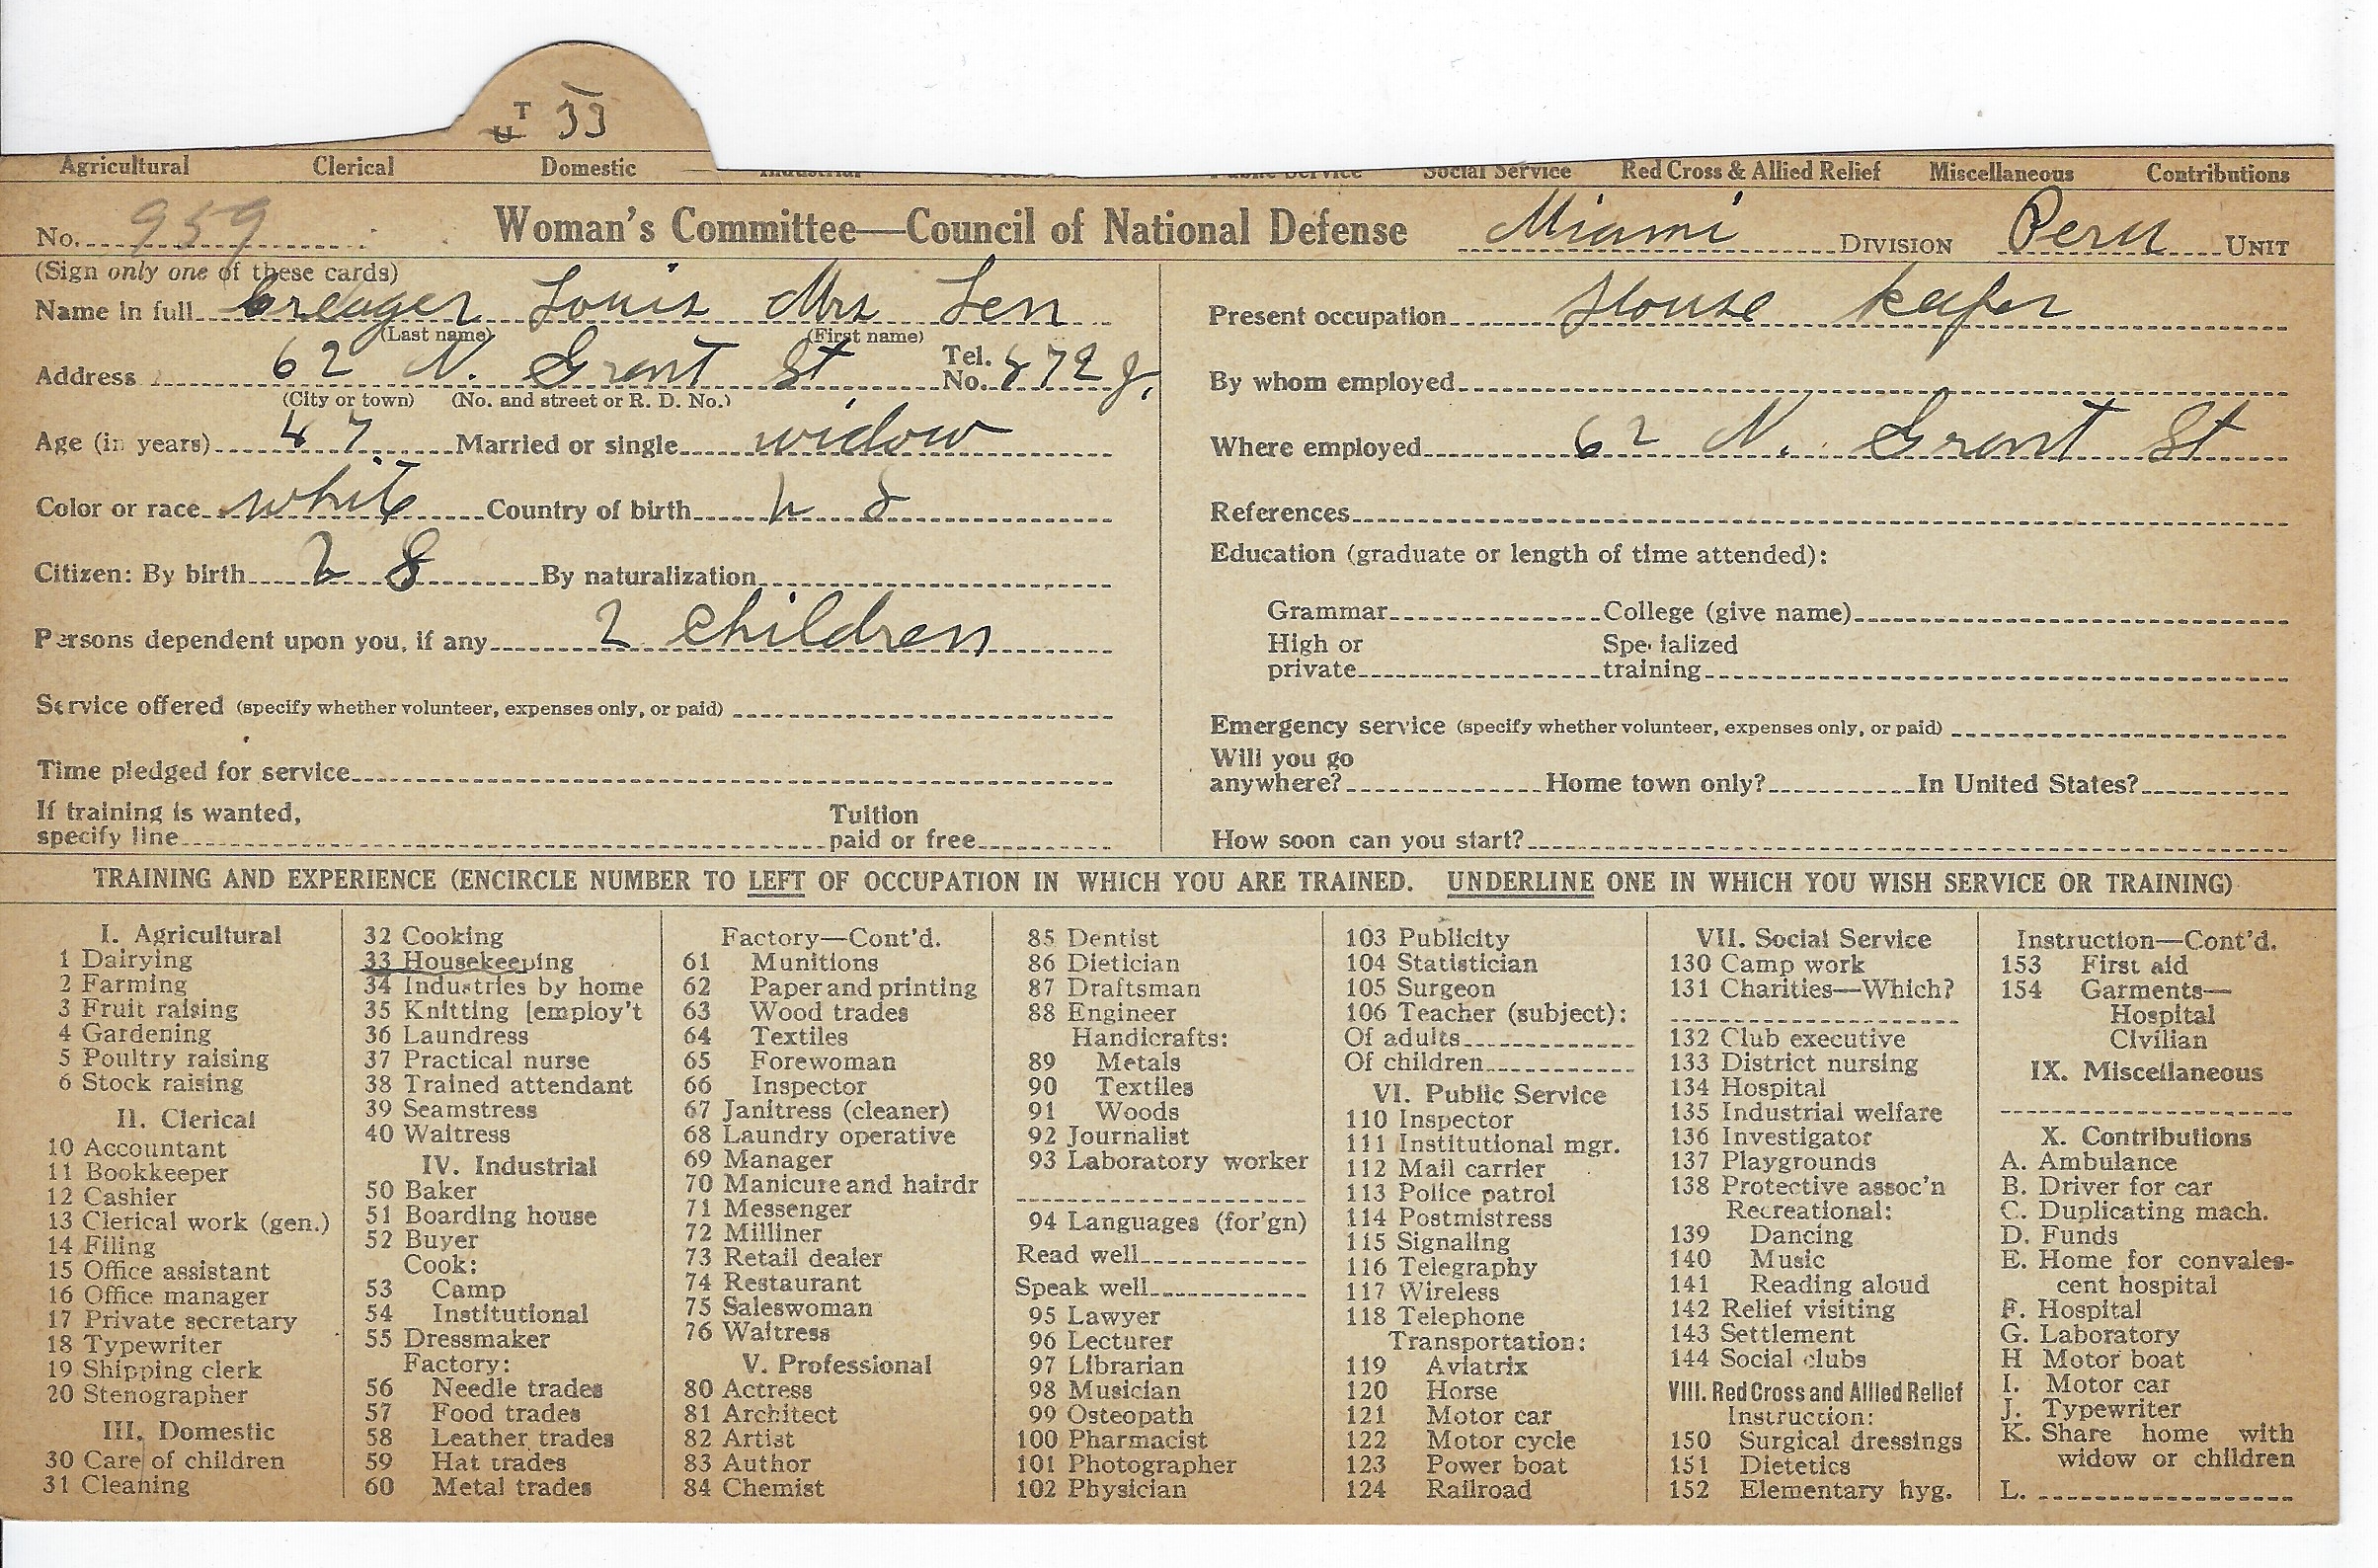 T 33
Agricultural Clerical Domestic Industrial Public Service Social Service Red Cross & Allied Relief Miscellaneous Contributions
No. 959 Woman's Committee—Council of National Defense Miami DIVISION Peru UNIT
(Sign only one of these cards)
Name in full Creager Louis Mrs Len
(Last name) (First name)
Address 62 N. Grant St Tel. No. 872 J.
(City or town) (No. and street or R. D. No.)
Age (in years) 47 Married or single widow
Color or race white Country of birth U S
Citizen: By birth U S By naturalization
Persons dependent upon you, if any 2 children
Service offered (specify whether volunteer, expenses only, or paid)
Time pledged for service
If training is wanted, specify line Tuition paid or free
Present occupation House keeper
By whom employed
Where employed 62 N. Grant St
References
Education (graduate or length of time attended):
Grammar College (give name)
High or private Specialized training
Emergency service (specify whether volunteer, expenses only, or paid)
Will you go anywhere? Home town only? In United States?
How soon can you start?
TRAINING AND EXPERIENCE (ENCIRCLE NUMBER TO LEFT OF OCCUPATION IN WHICH YOU ARE TRAINED. UNDERLINE ONE IN WHICH YOU WISH SERVICE OR TRAINING)
I. Agricultural
1 Dairying
2 Farming
3 Fruit raising
4 Gardening
5 Poultry raising
6 Stock raising
II. Clerical
10 Accountant
11 Bookkeeper
12 Cashier
13 Clerical work (gen.)
14 Filing
15 Office assistant
16 Office manager
17 Private secretary
18 Typewriter
19 Shipping clerk
20 Stenographer
III. Domestic
30 Care of children
31 Cleaning
32 Cooking
33 Housekeeping
34 Industries by home
35 Knitting [employ't
36 Laundress
37 Practical nurse
38 Trained attendant
39 Seamstress
40 Waitress
IV. Industrial
50 Baker
51 Boarding house
52 Buyer
Cook:
53 Camp
54 Institutional
55 Dressmaker
Factory:
56 Needle trades
57 Food trades
58 Leather trades
59 Hat trades
60 Metal trades
Factory—Cont'd.
61 Munitions
62 Paper and printing
63 Wood trades
64 Textiles
65 Forewoman
66 Inspector
67 Janitress (cleaner)
68 Laundry operative
69 Manager
70 Manicure and hairdr
71 Messenger
72 Milliner
73 Retail dealer
74 Restaurant
75 Saleswoman
76 Waitress
V. Professional
80 Actress
81 Architect
82 Artist
83 Author
84 Chemist
85 Dentist
86 Dietician
87 Draftsman
88 Engineer
Handicrafts:
89 Metals
90 Textiles
91 Woods
92 Journalist
93 Laboratory worker
94 Languages (for'gn)
Read well
Speak well
95 Lawyer
96 Lecturer
97 Librarian
98 Musician
99 Osteopath
100 Pharmacist
101 Photographer
102 Physician
103 Publicity
104 Statistician
105 Surgeon
106 Teacher (subject):
Of adults
Of children
VI. Public Service
110 Inspector
111 Institutional mgr.
112 Mail carrier
113 Police patrol
114 Postmistress
115 Signaling
116 Telegraphy
117 Wireless
118 Telephone
Transportation:
119 Aviatrix
120 Horse
121 Motor car
122 Motor cycle
123 Power boat
124 Railroad
VII. Social Service
130 Camp work
131 Charities—Which?
132 Club executive
133 District nursing
134 Hospital
135 Industrial welfare
136 Investigator
137 Playgrounds
138 Protective assoc'n
Recreational:
139 Dancing
140 Music
141 Reading aloud
142 Relief visiting
143 Settlement
144 Social clubs
VIII. Red Cross and Allied Relief
Instruction:
150 Surgical dressings
151 Dietetics
152 Elementary hyg.
Instruction—Cont'd.
153 First aid
154 Garments—
Hospital
Civilian
IX. Miscellaneous
X. Contributions
A. Ambulance
B. Driver for car
C. Duplicating mach.
D. Funds
E. Home for convales-
cent hospital
F. Hospital
G. Laboratory
H Motor boat
I. Motor car
J. Typewriter
K. Share home with
widow or children
L.